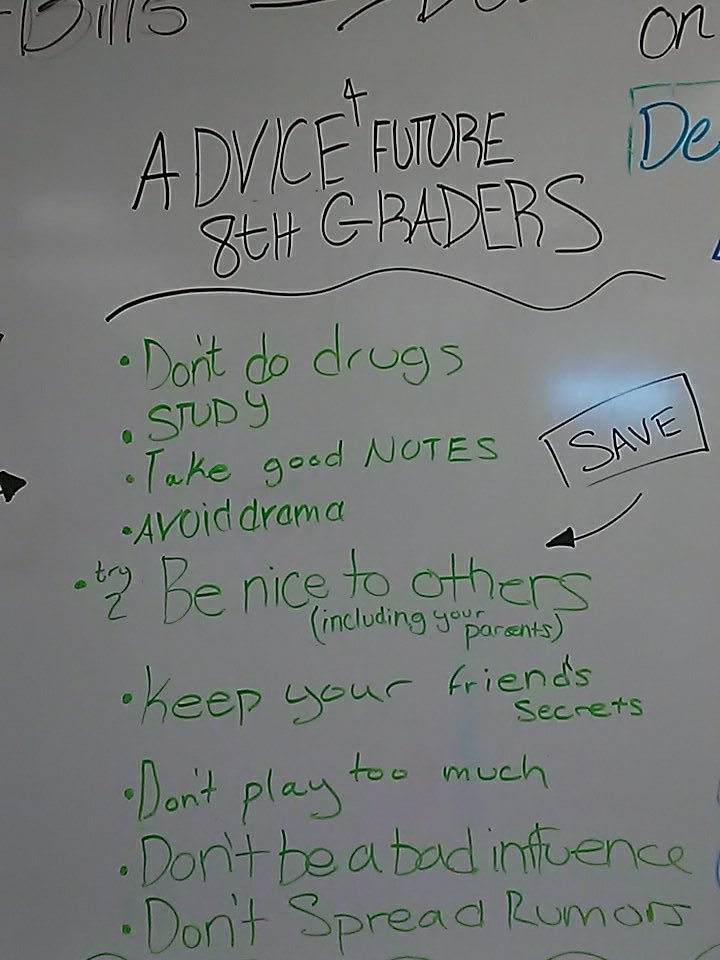 Bills
on
De
ADVICE 4 FUTURE
8tH GRADERS
• Don't do drugs
• STUDY
• Take good NOTES
SAVE
• AVOID drama
• try 2 Be nice to others
(including your
parents)
• Keep your friend's
secrets
• Don't play too much
• Don't be a bad influence
• Don't Spread Rumors